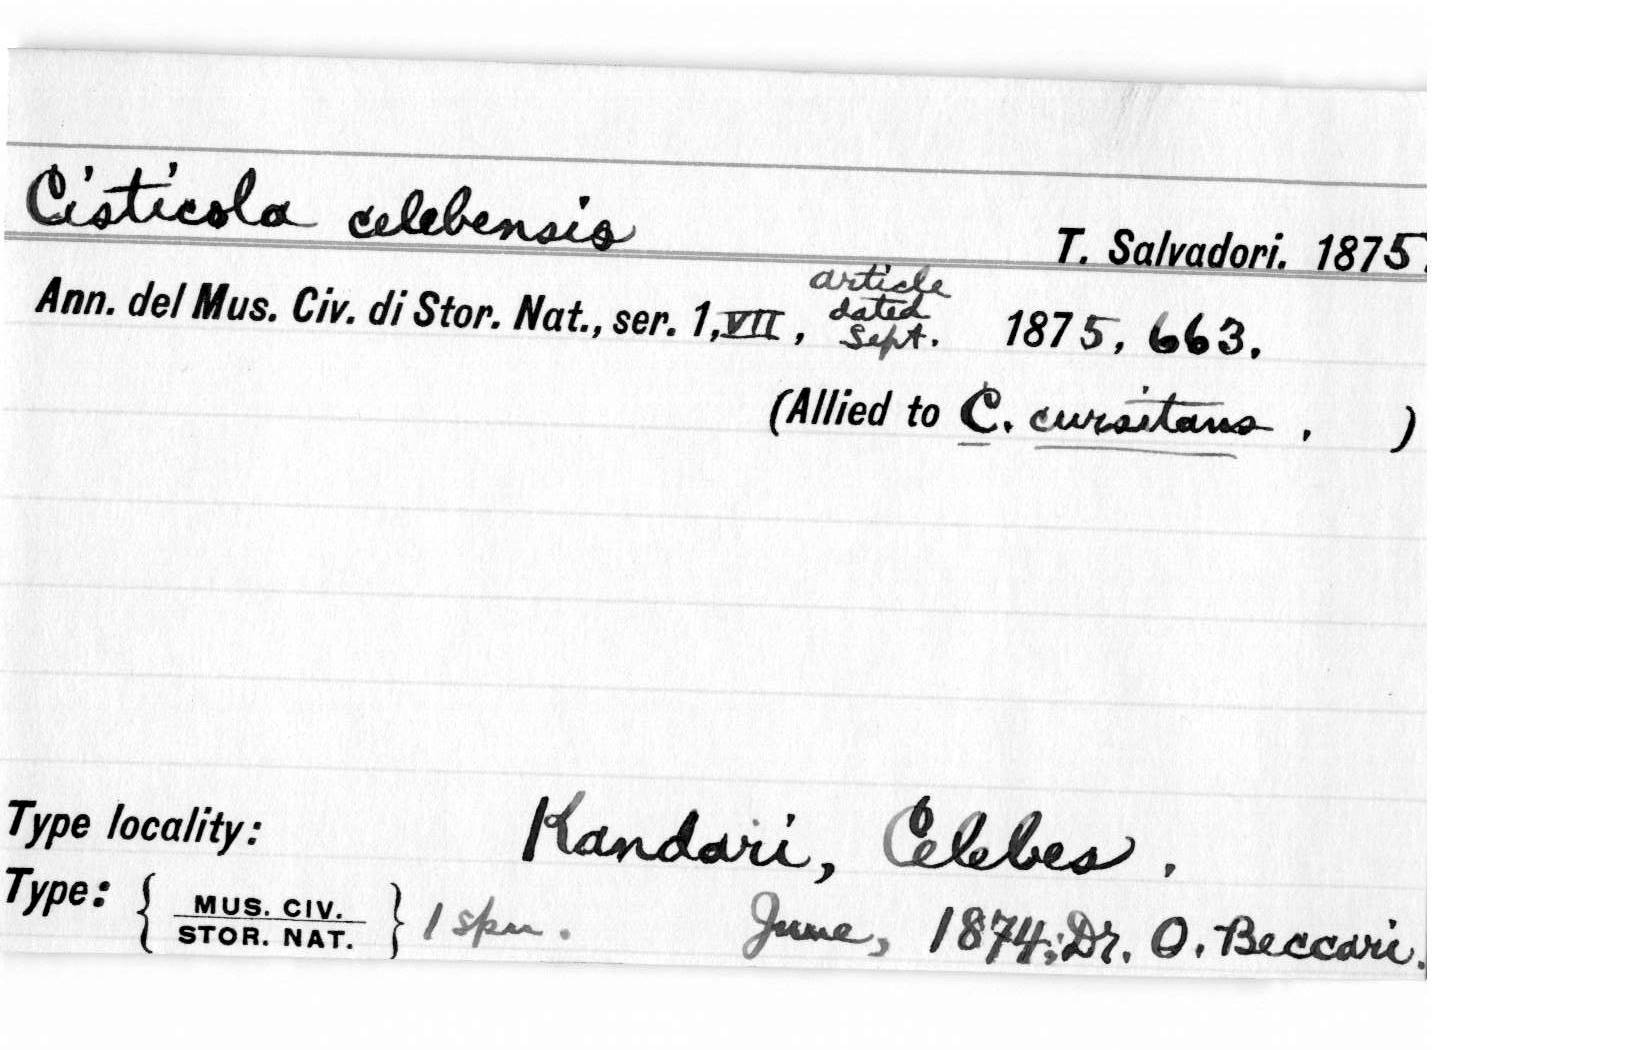 Cisticola celebensis T. Salvadori. 1875.
Ann. del Mus. Civ. di Stor. Nat., ser. 1, VII, article dated Sept. 1875, 663.
(Allied to C. cursitans. )
Type locality: Kandari, Celebes.
Type: { MUS. CIV. STOR. NAT. } 1 spm. June, 1874; Dr. O. Beccari.